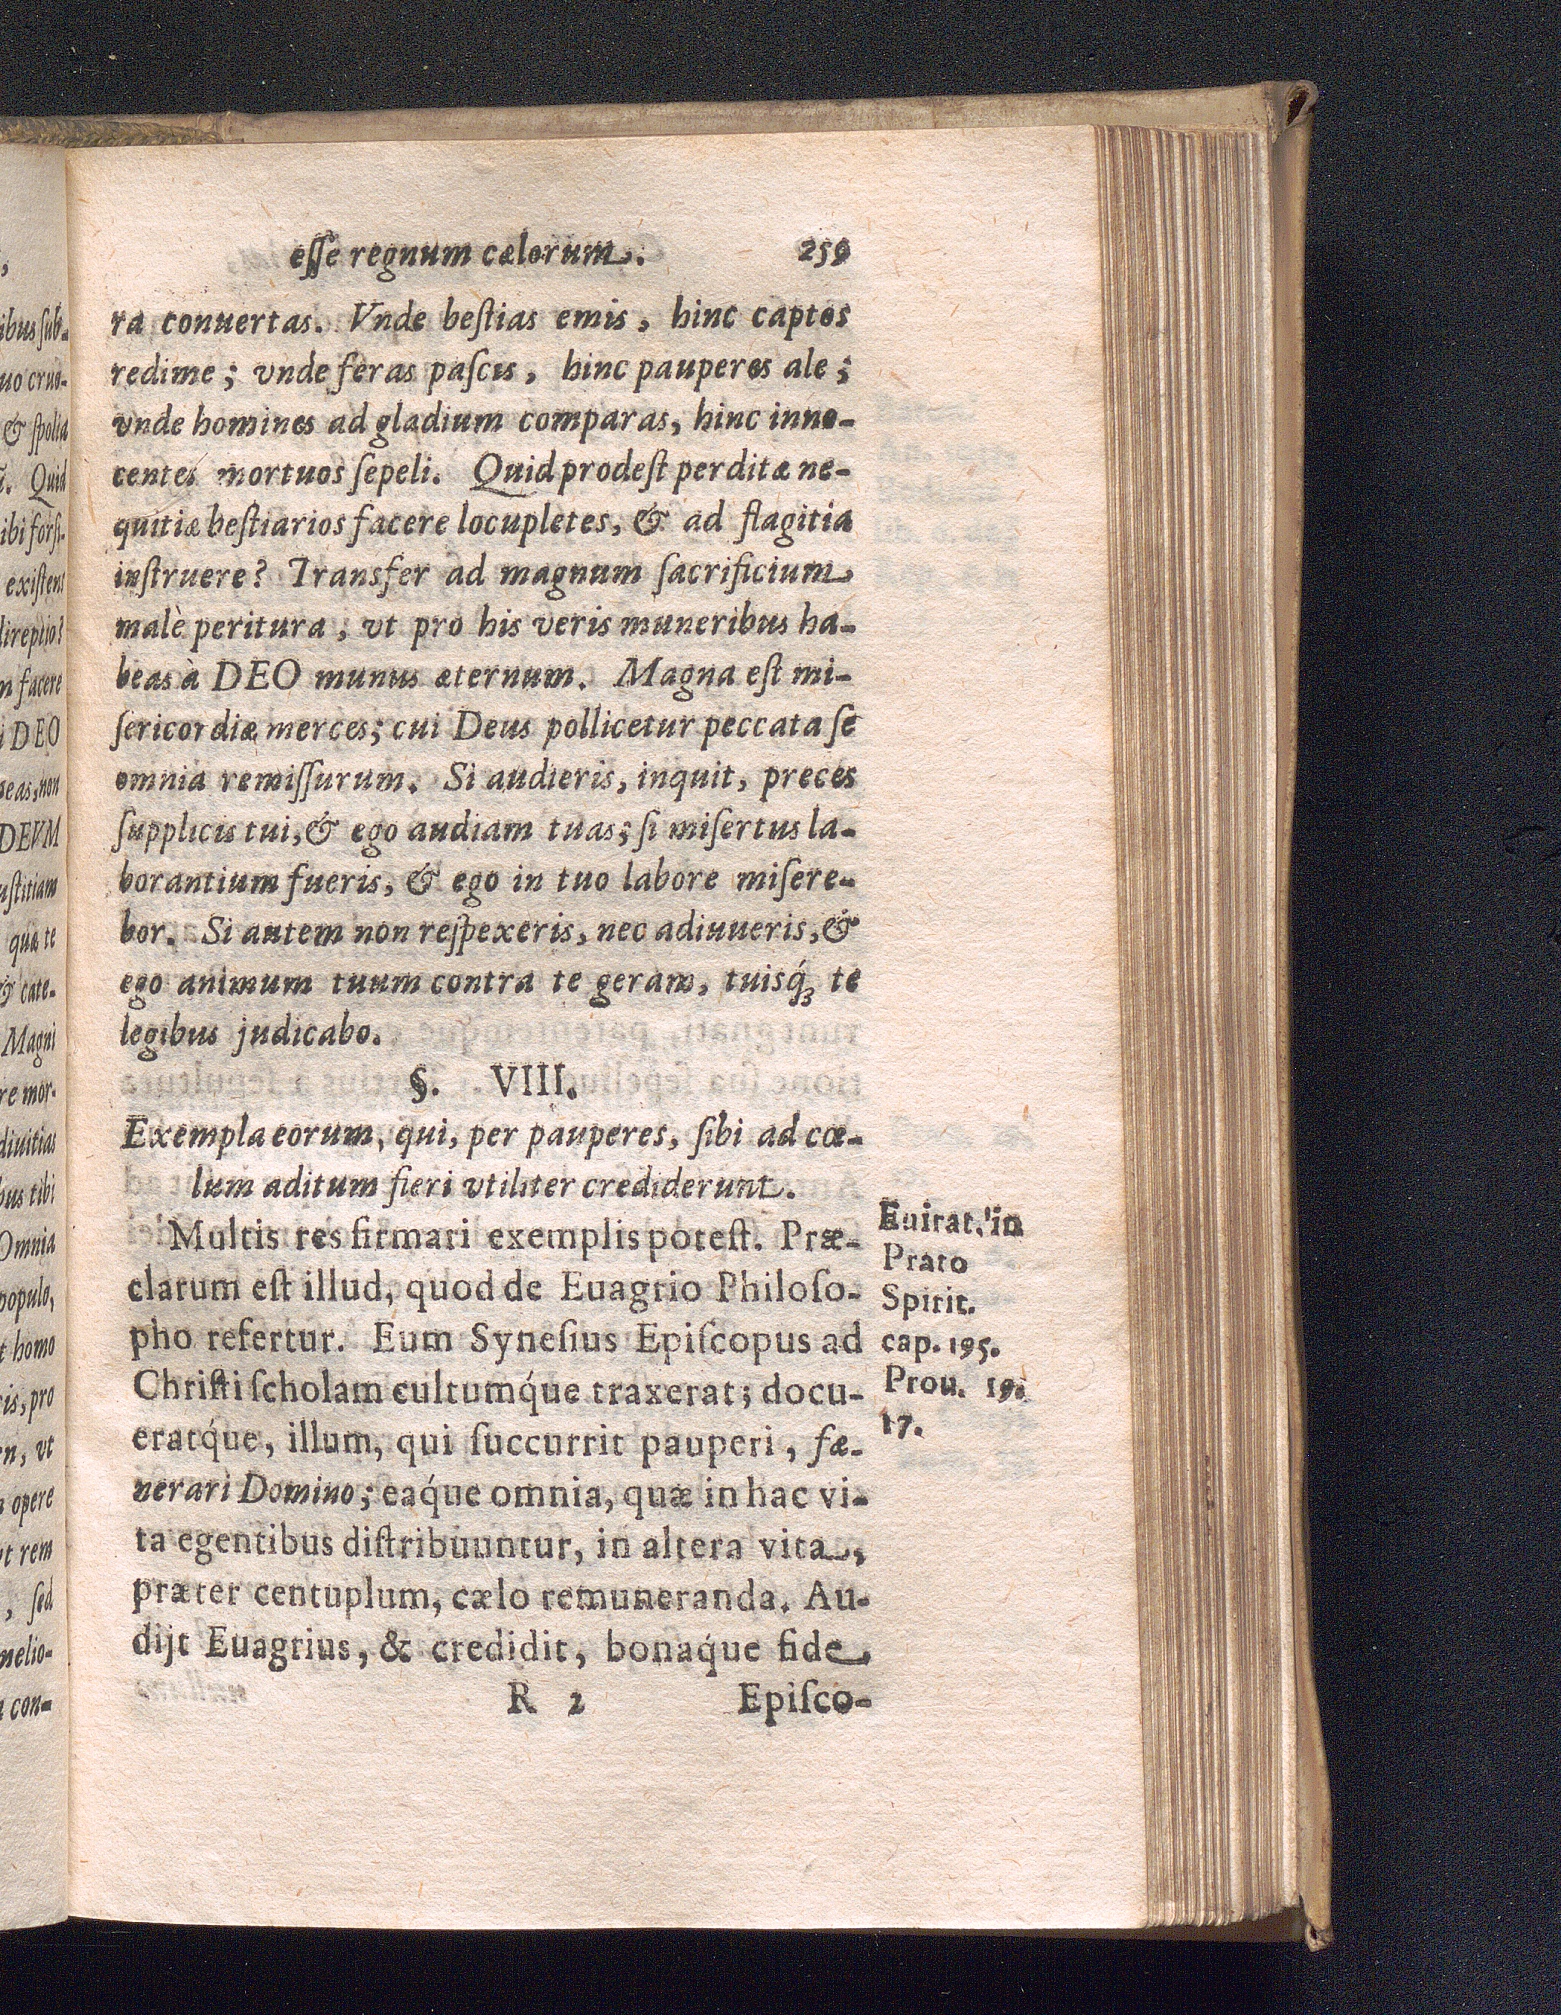 esse regnum cælorum. 259
ra conuertas. Vnde bestias emis, hinc captos
redime; vnde feras pascis, hinc pauperes ale;
vnde homines ad gladium comparas, hinc inno-
centes mortuos sepeli. Quid prodest perditæ ne-
quitiæ bestiarios facere locupletes, & ad flagitia
instruere? Transfer ad magnum sacrificium
malè peritura, vt pro his veris muneribus ha-
beas à DEO munus æternum. Magna est mi-
sericordiæ merces; cui Deus pollicetur peccata se
omnia remissurum. Si audieris, inquit, preces
supplicis tui, & ego audiam tuas; si misertus la-
borantium fueris, & ego in tuo labore misere-
bor. Si autem non respexeris, nec adiuueris, &
ego animum tuum contra te geram, tuisq́ꝫ te
legibus judicabo.
§. VIII.
Exempla eorum, qui, per pauperes, sibi ad cœ-
lum aditum fieri vtiliter crediderunt.
Multis res firmari exemplis potest. Præ-
clarum est illud, quod de Euagrio Philoso-
pho refertur. Eum Synesius Episcopus ad
Christi scholam cultumq́ue traxerat; docu-
eratq́ue, illum, qui succurrit pauperi, fæ-
nerari Domino; eaq́ue omnia, quæ in hac vi-
ta egentibus distribuuntur, in altera vita,
præter centuplum, cælo remuneranda. Au-
dijt Euagrius, & credidit, bonaq́ue fide
R 2 Episco-
Euirat. in
Prato
Spirit.
cap. 195.
Prou. 19.
17.
ibus sub-
& spolia
Quid
existens
direptio?
facere
DEO
non
DEVM
qua te
& cate-
Magni
re mor-
diuitias
bus tibi
Omnia
populo,
homo
pro
vt
opere
rem
, sed
melio-
con-